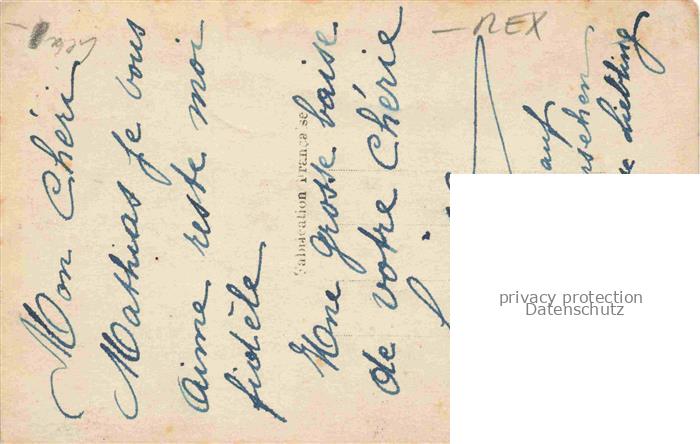 Mon Chéri
Mathias je vous
aime reste moi
fidèle
Une grosse baise
de votre Chérie
Fabrication Française
REX
auf
Liebling
privacy protection
Datenschutz